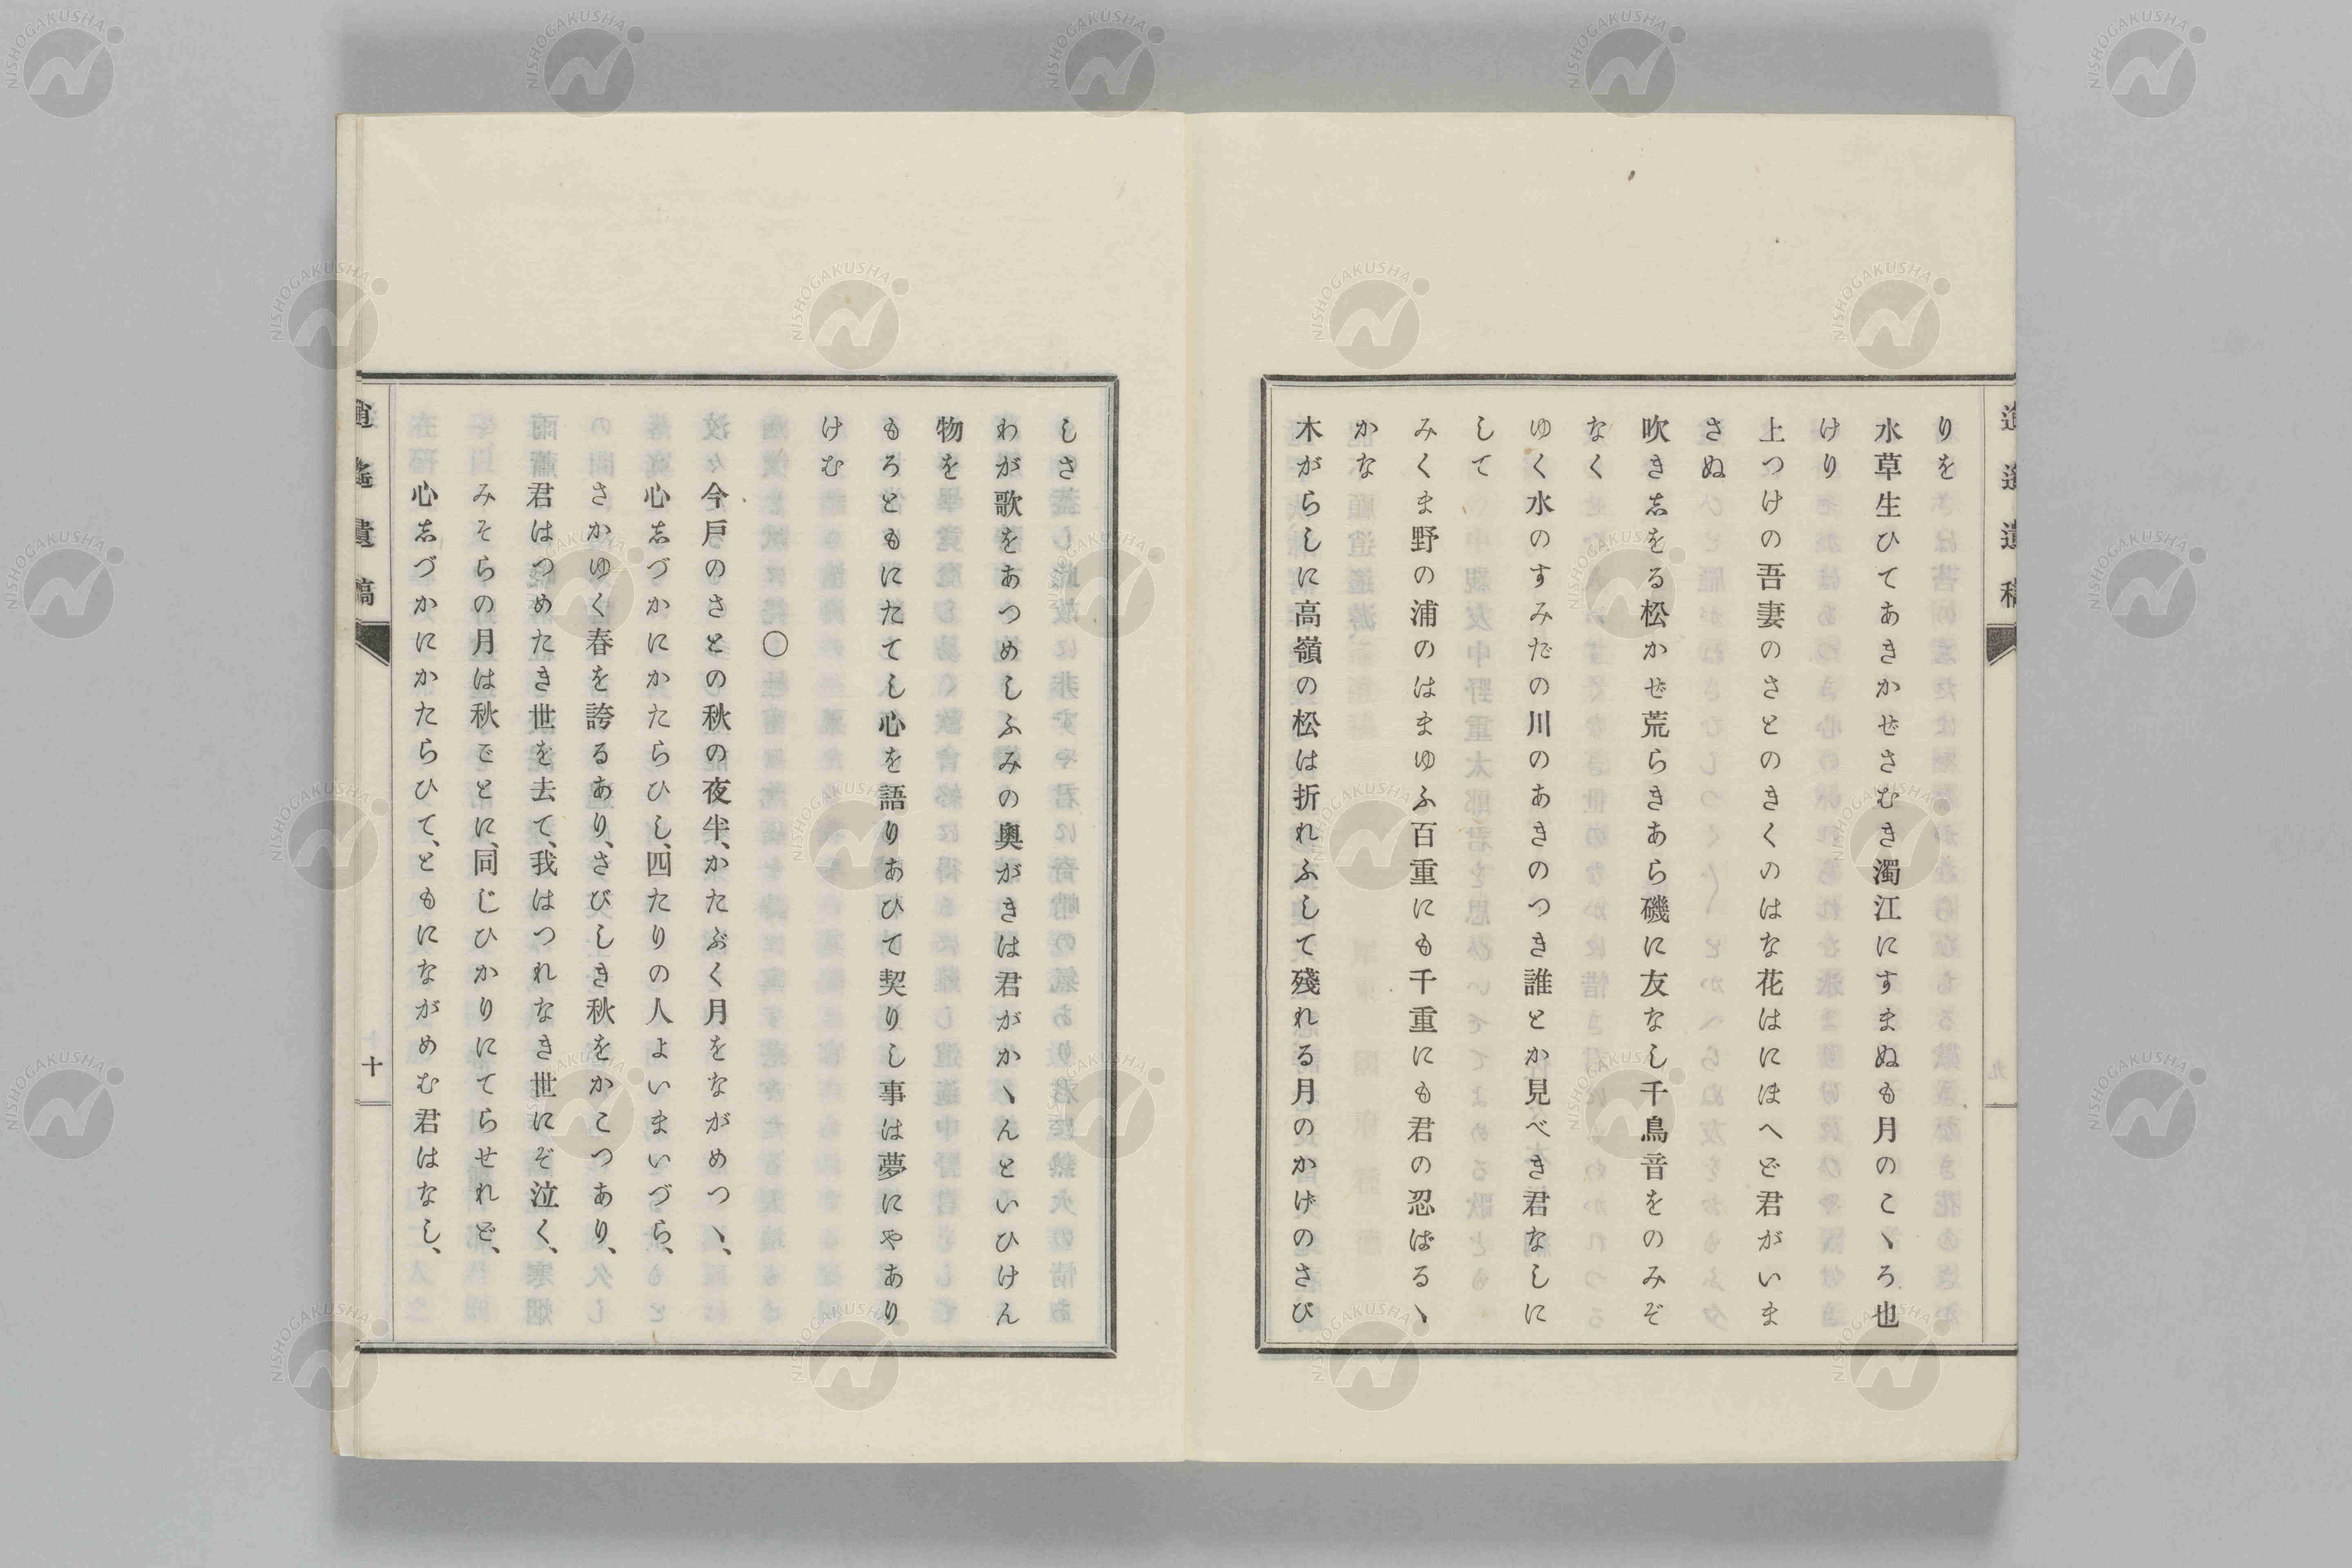 りを
水草生ひてあきかぜさむき濁江にすまぬも月のこゝろ也
けり
上つけの吾妻のさとのきくのはな花はにほへど君がいま
さぬ
吹きゑをる松かぜ荒らきあら磯に友なし千鳥音をのみぞ
なく
ゆく水のすみだの川のあきのつき誰とか見べき君なしに
して
みくま野の浦のはまゆふ百重にも千重にも君の忍ばるゝ
かな
木がらしに高嶺の松は折れふして殘れる月のかげのさび
しさ
わが歌をあつめしふみの奥がきは君がかゝんといひけん
物を
もろともにたてし心を語りあひて契りし事は夢にやあり
けむ
○
今戸のさとの秋の夜半、かたぶく月をながめつゝ、
心志づかにかたらひし、四たりの人よいまいづら、
さかゆく春を誇るあり、さびしき秋をかこつあり、
君はつめたき世を去て、我はつれなき世にぞ泣く、
みそらの月は秋ごとに、同じひかりにてらせれど、
心志づかにかたらひて、ともにながめむ君はなし、
逍遙遺稿
十
NISHOGAKUSHA